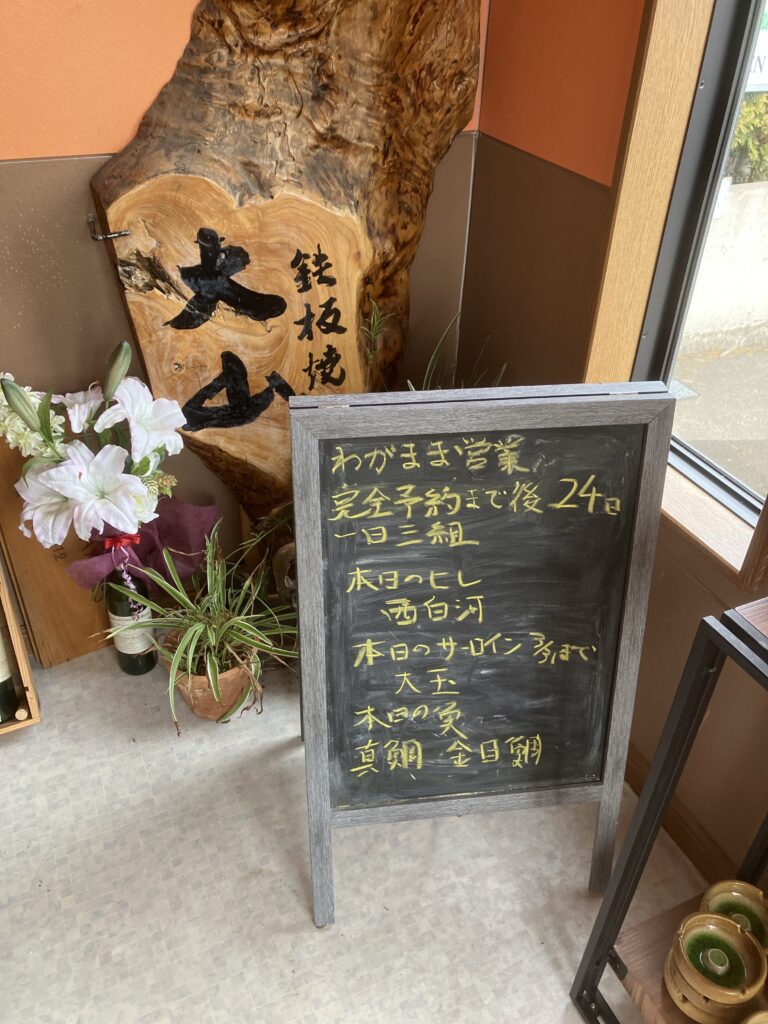 鉄板焼
大山
わがまま営業
完全予約まで後24日
一日三組
本日のヒレ
西白河
本日のサーロイン 3/31まで
大玉
本日の魚
真鯛 金目鯛